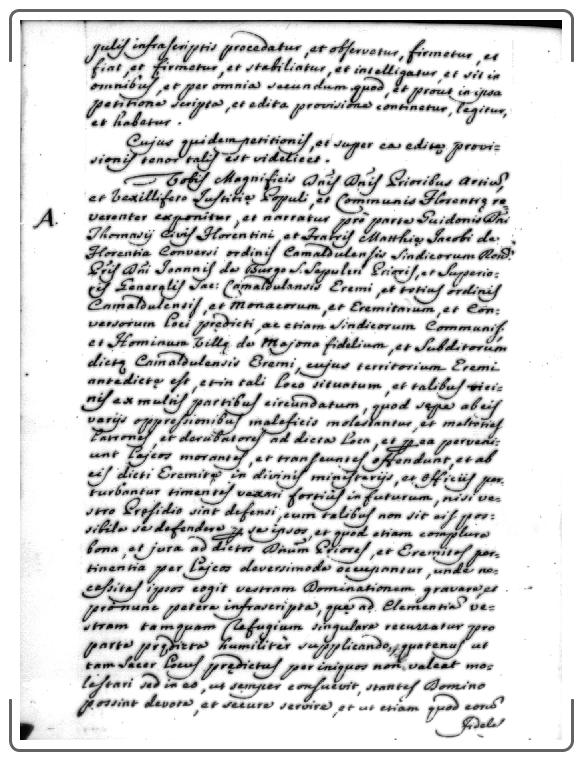 gulis infrascriptis procedatur, et observetur, firmetur, et
fiat, et firmetur, et stabiliatur, et intelligatur, et sit in
omnibus, et per omnia secundum quod, et prout in ipsa
petitione scripta, et edita provisione continetur, legitur,
et habetur.
Cujus quidem petitionis, et super ea editę provi=
sionis tenor talis est videlicet.
Vobis Magnificis Dnis Dnis Prioribus Artiu,
et Vexillifero Justitię Populi, et Communis Florentię re
A.
verenter exponitur, et narratur pro parte Guidonis Dni
Thomasij Civis Florentini, et Fratris Matthię Jacobi de
Florentia Conversi ordinis Camaldulensis Sindicorum
Pris Dni Joannis de Burgo S. Sepulcri Prioris, et Superio=
ris Generalis Sac: Camaldulensis Eremi, et totius ordinis
Camaldulensis, et Monacorum, et Eremitarum, et Con=
versorum Loci predicti, ac etiam Sindicorum Communis,
et Hominum Villę de Majona fidelium, et Subditorum
dictę Camaldulensis Eremi, cujus territorium Eremi
antedictę est, et in tali loco situatum, et talibus vici=
nis ex multis partibus circundatum, quod sępe ab eis
varijs oppressionibus maleficis molestantur, et
Latrones, et derubatores ad dicta Loca, et p ea perveni=
unt Lajcos morantes, et transeuntes offendunt, et ab
eis dicti Eremitę in divinis ministerijs, et Officijs per=
turbantur timentes vexari fortius in futurum, nisi ve=
stro Pręsidio sint defensi, cum talibus non sit eis pos=
sibile se defendere p se ipsos, et quod etiam complura
bona, et jura ad dictos Dnum Priores, et Eremitas per=
tinentia per Lajcos diversimode occupantur, unde ne=
cessitas ipsos cogit vestram Dominationem gravare, et
pro nunc petere infrascripta, quę ad Clementia ve=
stram tamquam Refugium singulare recurratur pro
parte prędicta humiliter supplicando, quatenus ut
tam Sacer Locus prędictus per iniquos non valeat mo=
lestari sed in eo, ut semper consuevit, stantes Domino
possint devote, et secure servire, et ut etiam quod
Fidele